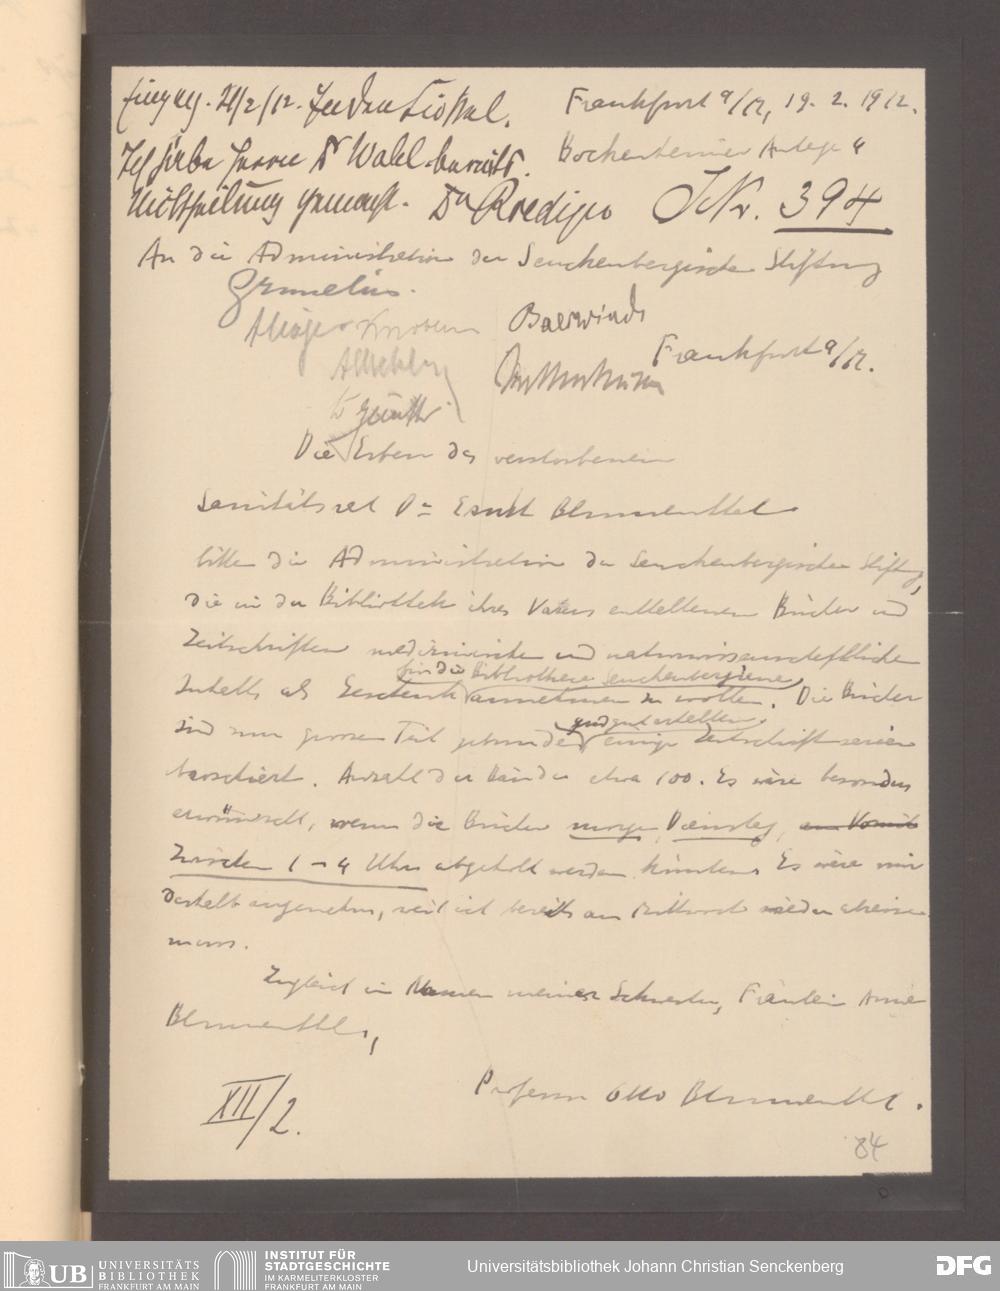 Eingeg. 21/2/12. Jeden
Frankfurt a/M, 19. 2. 1912.
Ich habe Herrn Dr Wahl bereits
Bockenheimer Anlage 4
Mittheilung gemacht. Dr Roediger
JNr. 394
An die Administration der Senckenbergischen Stiftung
Grunelius.
Baerwindt
Frankfurt a/M.
Günther
Die Erben des verstorbenen
Sanitätsrat Dr Ernst Blumenthal
bitten die Administration der Senckenbergischen Stiftung,
die in der Bibliothek ihres Vaters enthaltenen Bücher und
Zeitschriften medizinischen und naturwissenschaftlichen
für die Bibliotheca Senckenbergiana
Inhalts als Geschenk annehmen zu wollen. Die Bücher
und gut erhalten,
sind zum grossen Teil gebunden einige Zeitschriftserien
broschiert. Anzahl der Bände etwa 100. Es wäre besonders
erwünscht, wenn die Bücher morgen, Dienstag,
zwischen 1 – 4 Uhr abgeholt werden könnten. Es wäre mir
deshalb angenehm, weil ich bereits am Mittwoch wieder abreisen
muss.
Zugleich im Namen meiner Schwester, Fräulein Anna
Blumenthal,
Professor Otto Blumenthal.
XII/2.
84
UB UNIVERSITÄTS
BIBLIOTHEK
FRANKFURT AM MAIN
INSTITUT FÜR
STADTGESCHICHTE
IM KARMELITERKLOSTER
FRANKFURT AM MAIN
Universitätsbibliothek Johann Christian Senckenberg
DFG